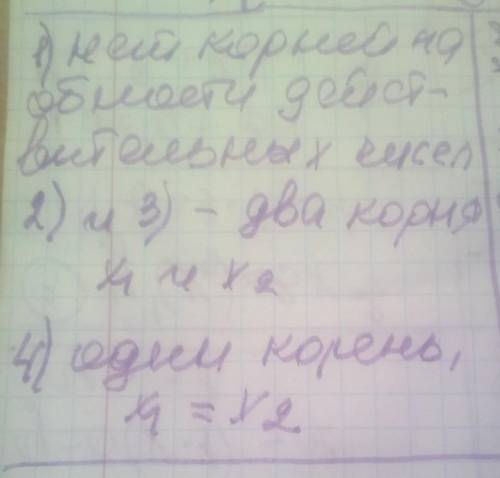 1) нет корней на
области дейст-
вительных чисел
2) и 3) - два корня
x1 и x2
4) один корень,
x1 = x2